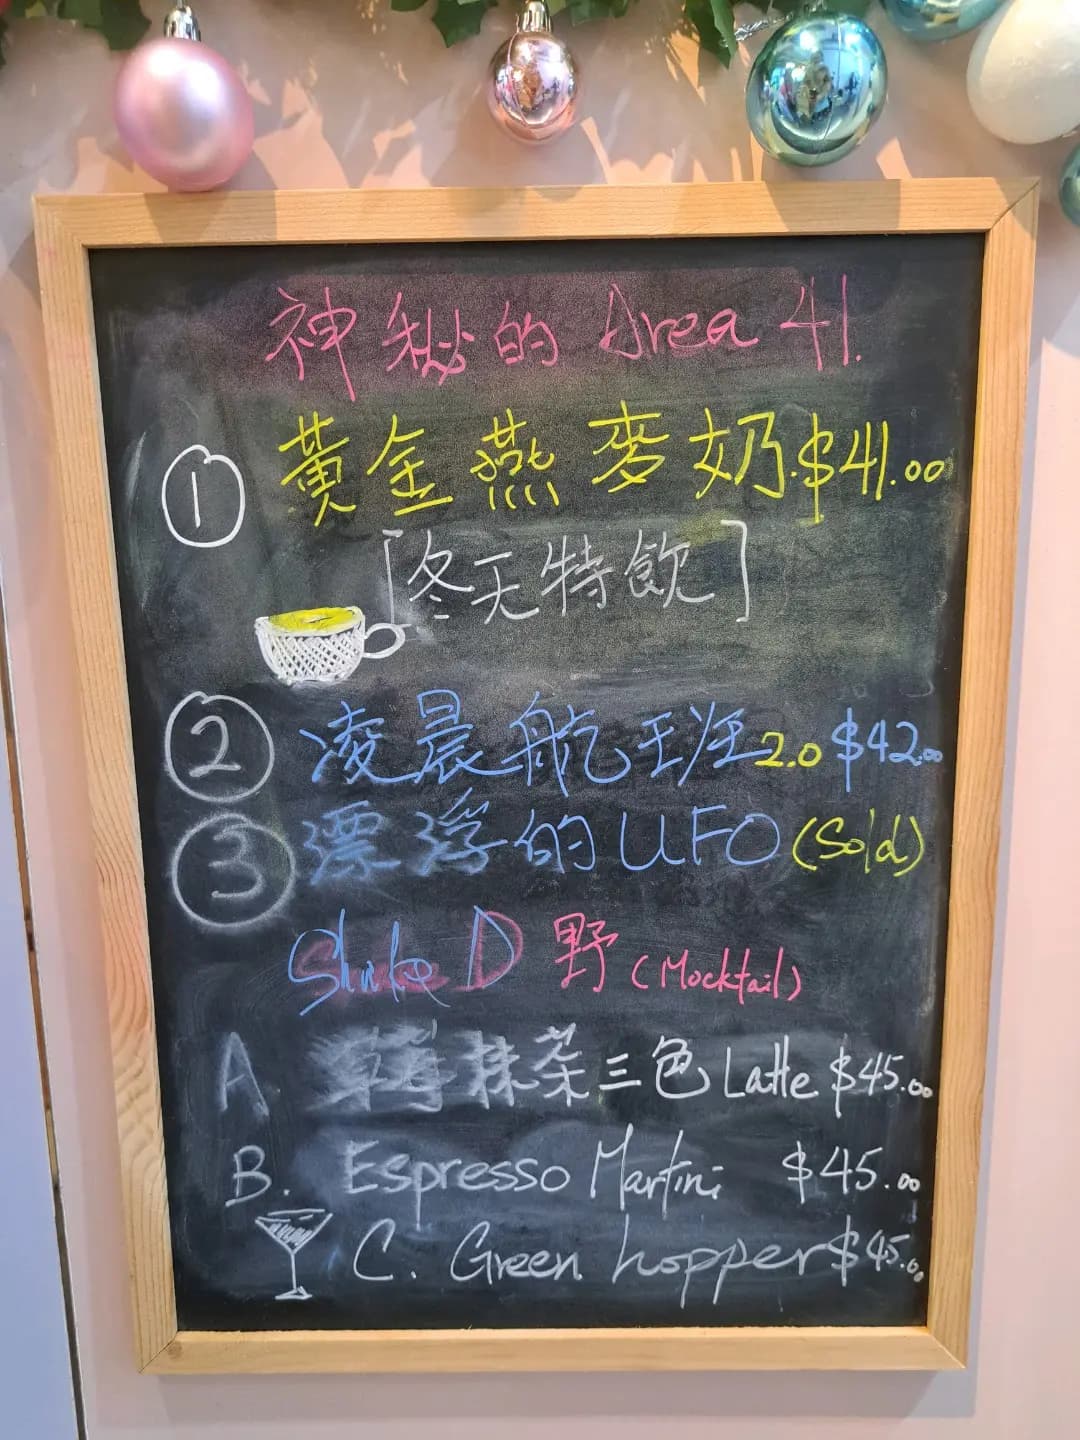 神秘的 Area 41.
① 黃金燕麥奶 $41.00
[冬天特飲]
② 凌晨航班2.0 $42.00
③ 漂浮的UFO (Sold)
Shake D 野 (Mocktail)
A. 草莓抹茶三色Latte $45.00
B. Espresso Martini $45.00
C. Green hopper $45.00